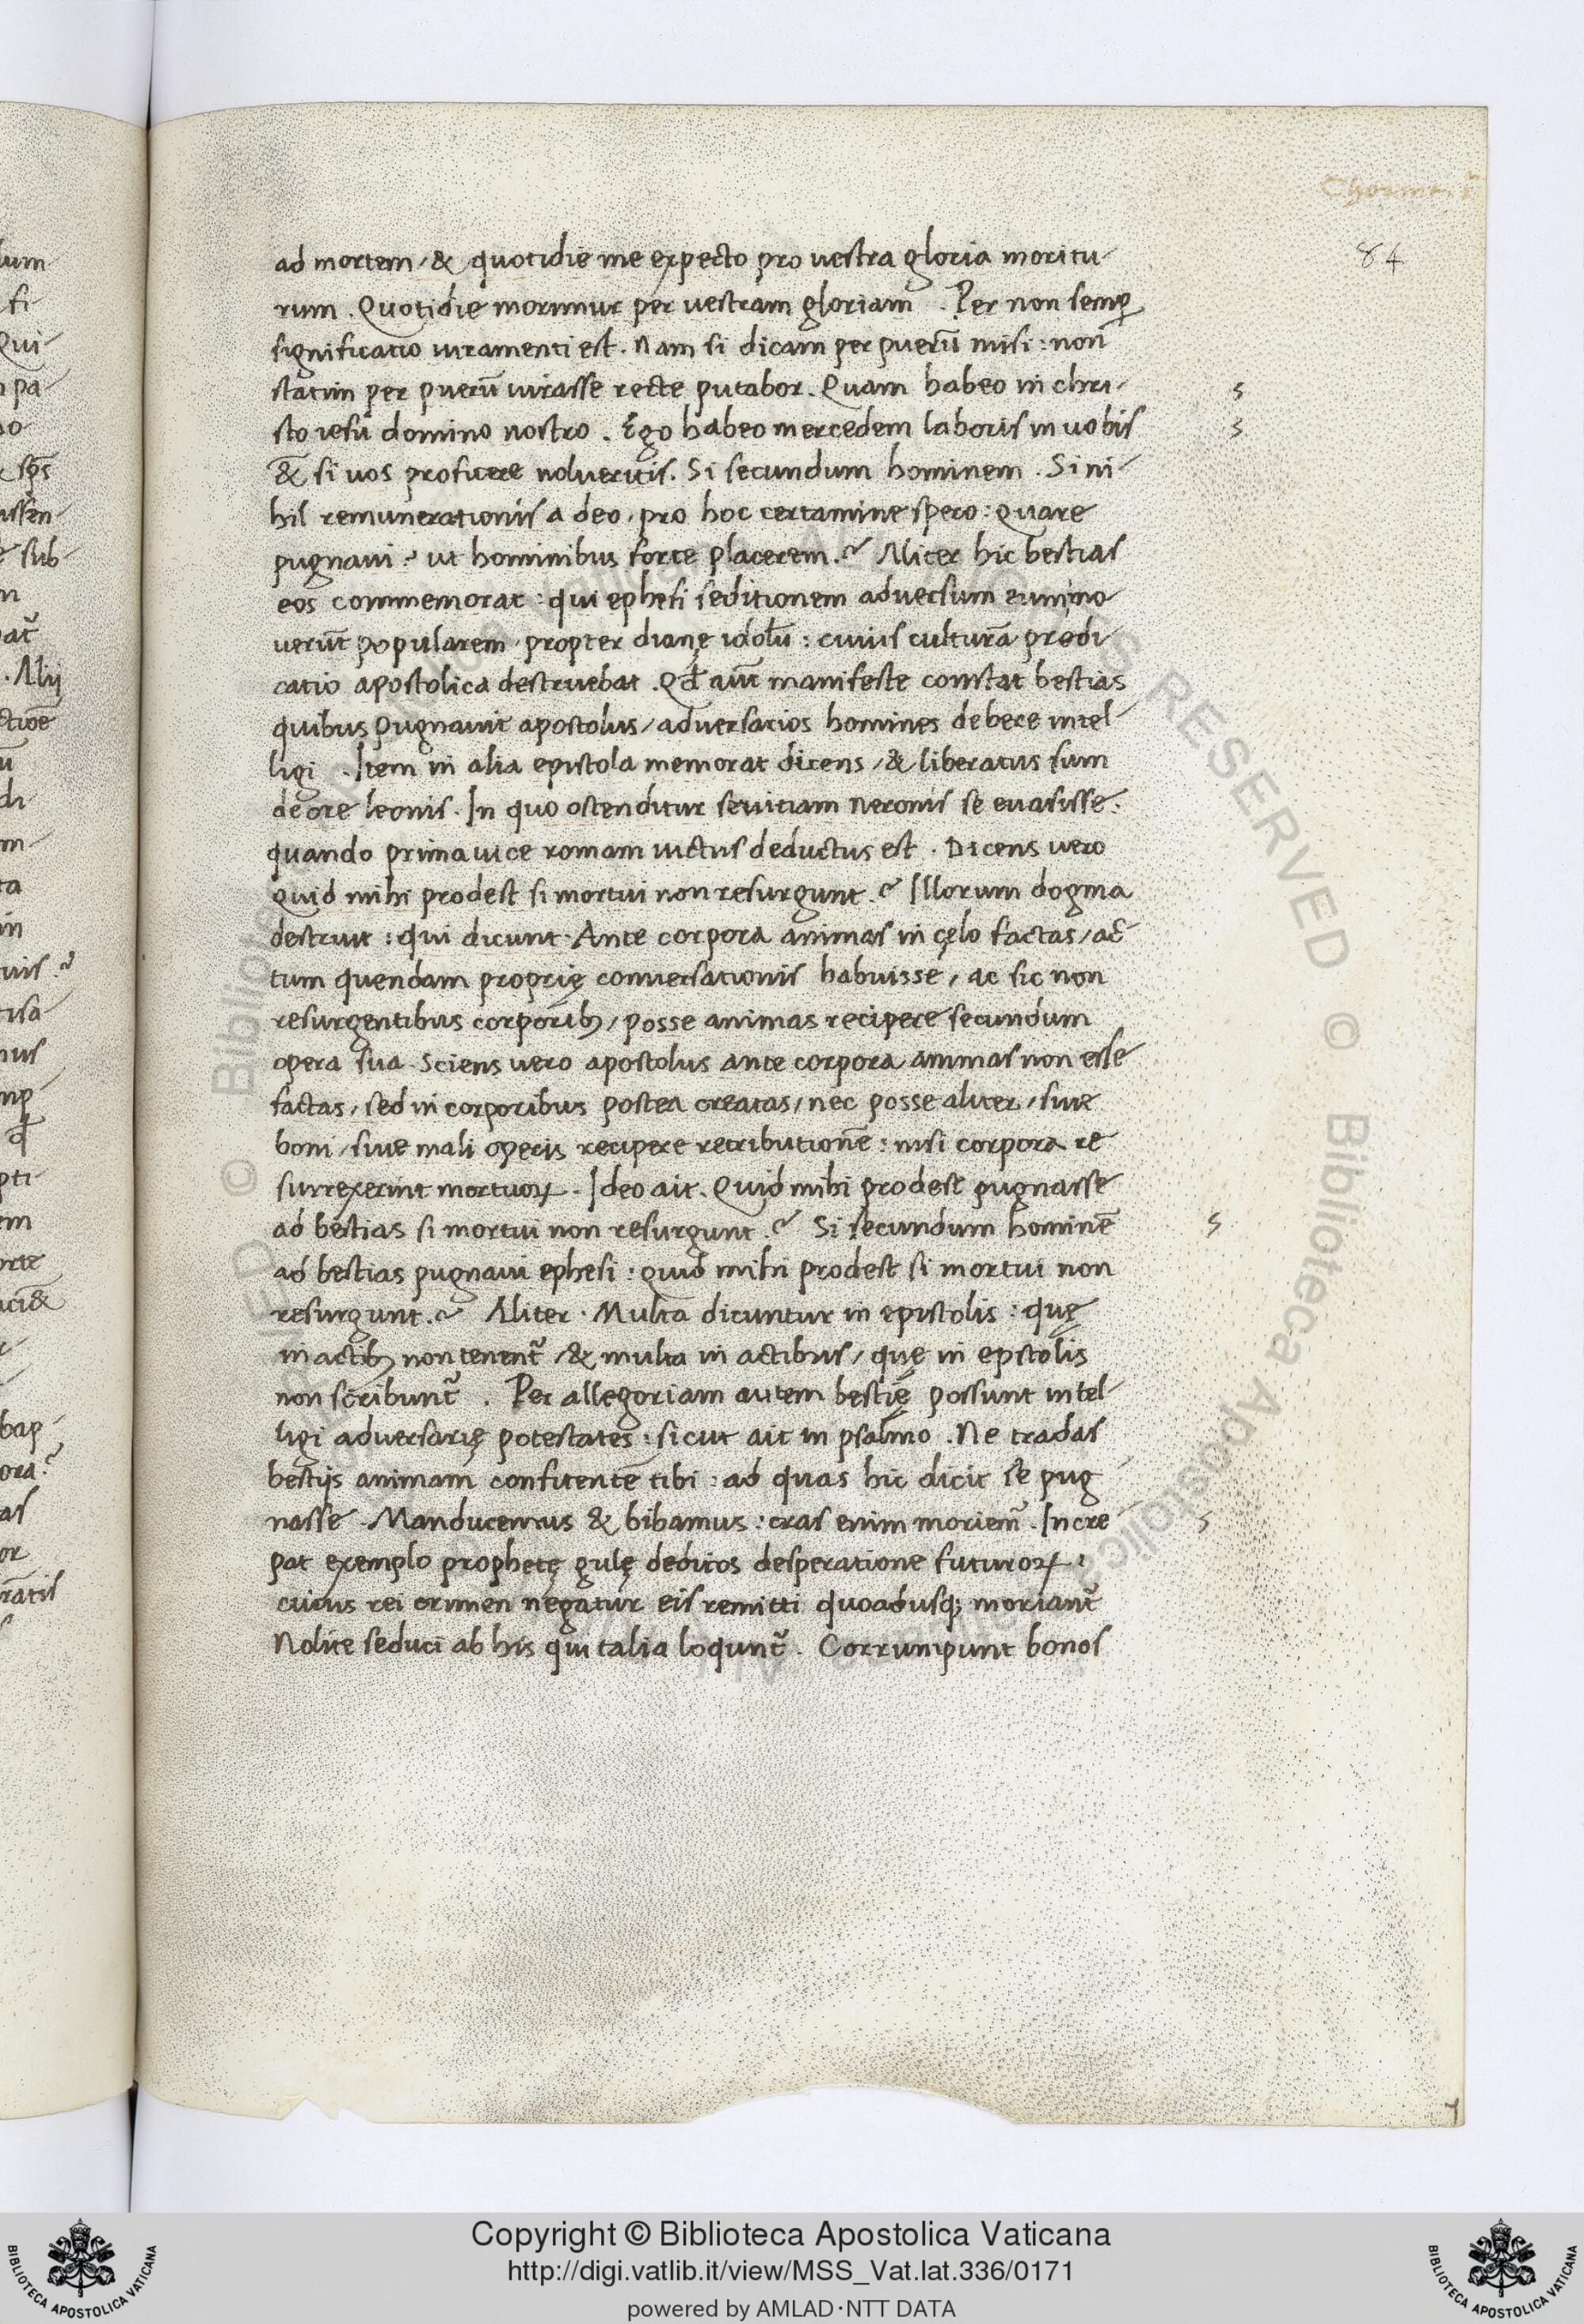 Chormt. i
84
ad mortem / & quotidie me expecto pro uestra gloria moritu-
rum . Quotidie morimur per uestram gloriam . Per non semp̲
significatio iuramenti est . Nam si dicam per puerū misi : non
statim per puerū iurasse recte putabor . Quam habeo in chri-
sto iesu domino nostro . Ego habeo mercedem laboris in uobis
& si uos proficere nolueritis . Si secundum hominem . Si ni-
hil remunerationis a deo , pro hoc certamine spero : quare
pugnaui ? ut hominibus forte placerem .? Aliter hic bestias
eos commemorat : qui ephesi seditionem aduersum eum mo-
uerūt popularem , propter dianę idolū : cuius culturā predi
catio apostolica destruebat . Qđ aūt manifeste constat bestias
quibus pugnauit apostolus / aduersarios homines debere intel-
ligi . Item in alia epistola memorat dicens / & liberatus sum
de ore leonis . In quo ostenditur seuitiam neronis se euasisse .
quando prima uice romam uictus deductus est . Dicens uero
quid mihi prodest si mortui non resurgunt .? Illorum dogma
destruit : qui dicunt . Ante corpora animas in cęlo factas / ac-
tum quendam proprię conuersationis habuisse / ac sic non
resurgentibus corporibꝫ / posse animas recipere secundum
opera sua . Sciens uero apostolus ante corpora animas non esse
factas / sed in corporibus postea creatas / nec posse aliter / siue
boni / siue mali operis recipere retributionē : nisi corpora re
surrexerint mortuoꝝ . Ideo ait . Quid mihi prodest pugnasse
ad bestias si mortui non resurgunt .? Si secundum hominē
ad bestias pugnaui ephesi : quid mihi prodest si mortui non
resurgunt .? Aliter . Multa dicuntur in epistolis : quę
in actibꝫ non tenent᷑ / & multa in actibus / quę in epistolis
non scribunt᷑ . Per allegoriam autem bestię possunt intel-
ligi aduersarię potestates : sicut ait in psalmo . Ne tradas
bestijs animam confitentē tibi : ad quas hic dicit se pug
nasse . Manducemus & bibamus : cras enim moriem᷑ . Incre
pat exemplo prophetę gulę deditos desperatione futuroꝝ :
cuius rei crimen negatur eis remitti quoadusqꝫ moriant᷑
Nolite seduci ab his qui talia loqunt᷑ . Corrumpunt bonos
Copyright © Biblioteca Apostolica Vaticana
http://digi.vatlib.it/view/MSS_Vat.lat.336/0171
powered by AMLAD·NTT DATA